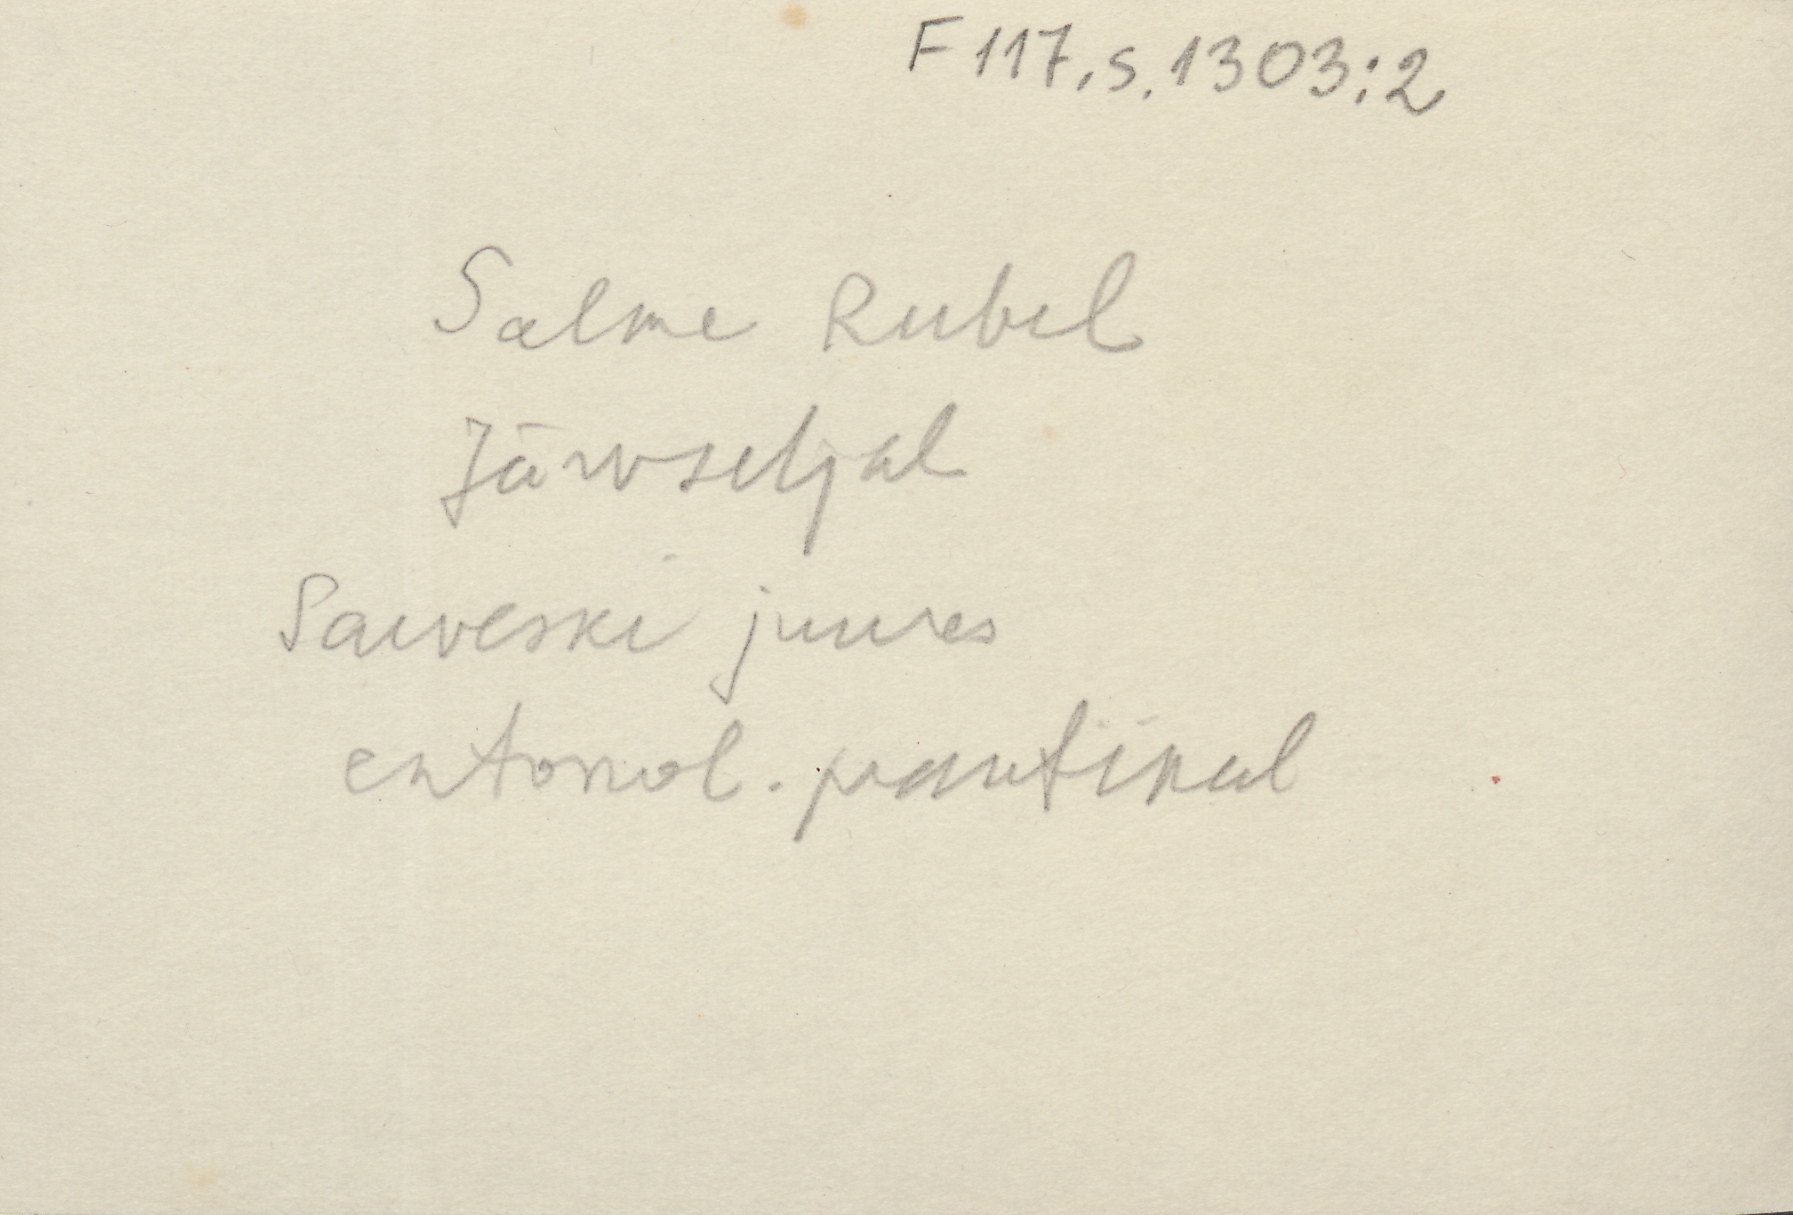 F 117, s. 1303:2
Salme Rubel
Järvseljal
Saeveski juures
entomol. praktikal